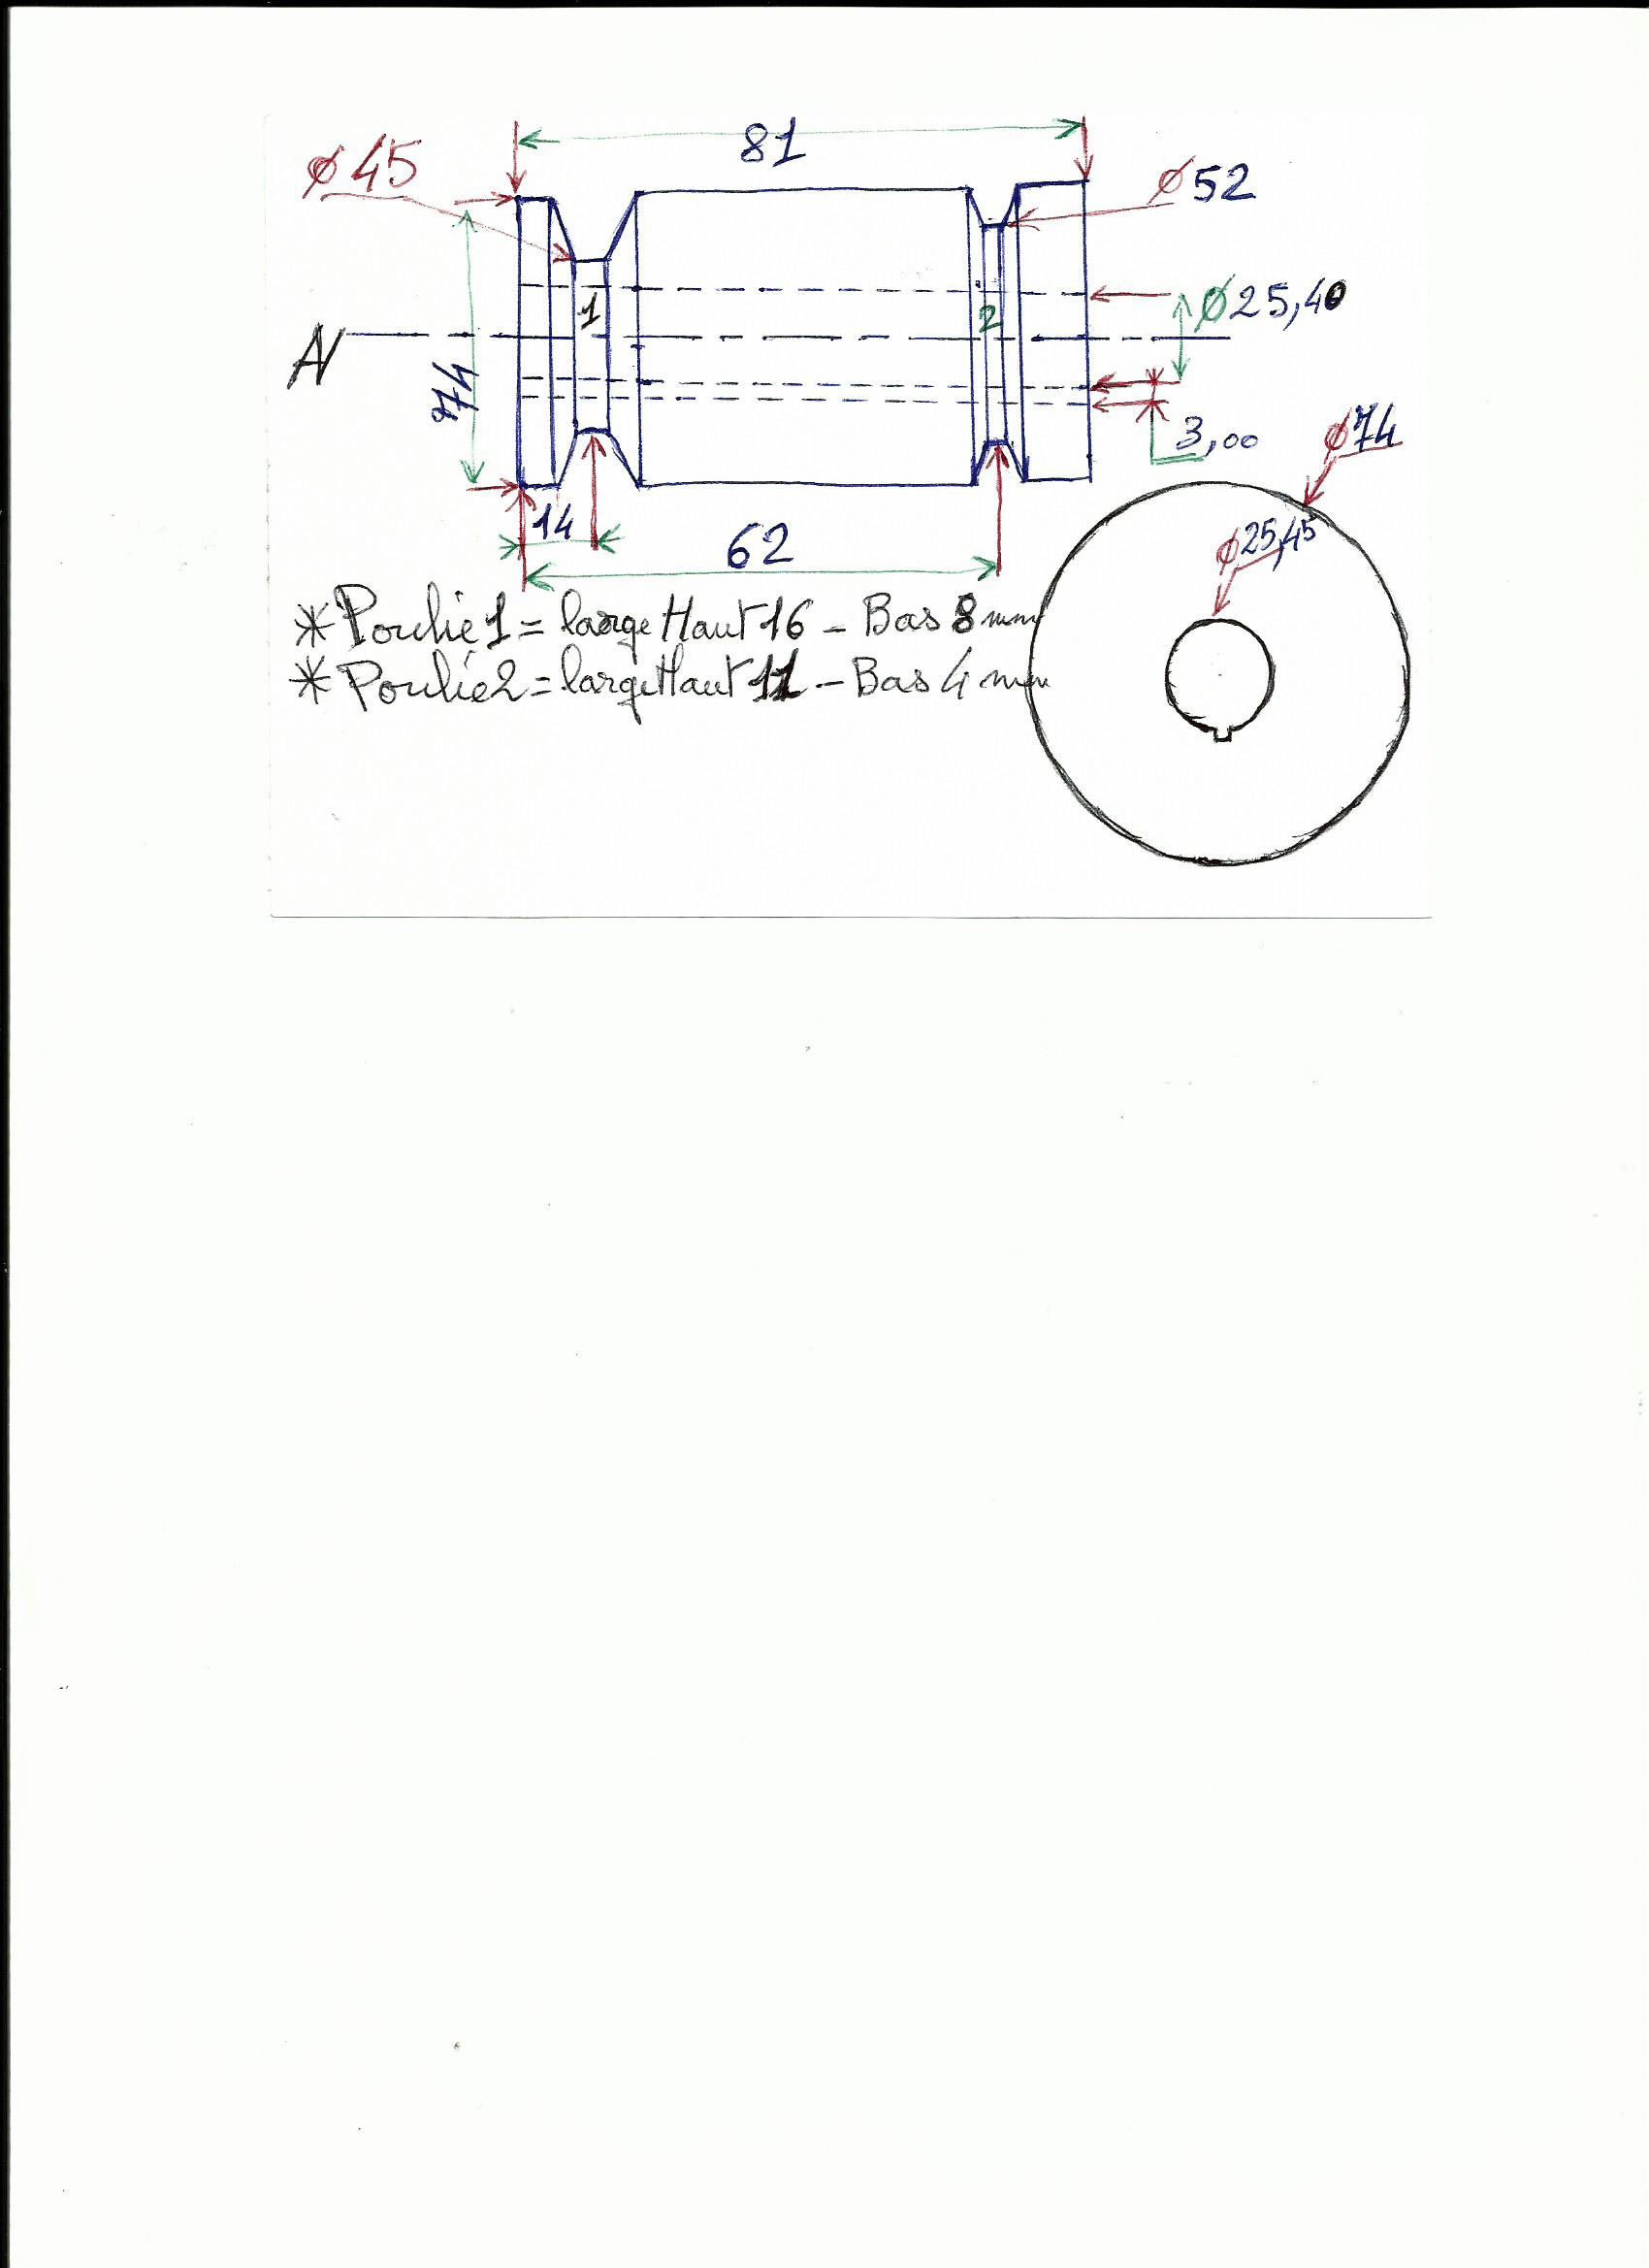 81
ø 45
ø52
1
2
ø25,40
AV
74
3,00
ø74
14
62
ø25,45
*Poulie 1 = large Haut 16 - Bas 8 mm
*Poulie 2 = large Haut 11 - Bas 4 mm